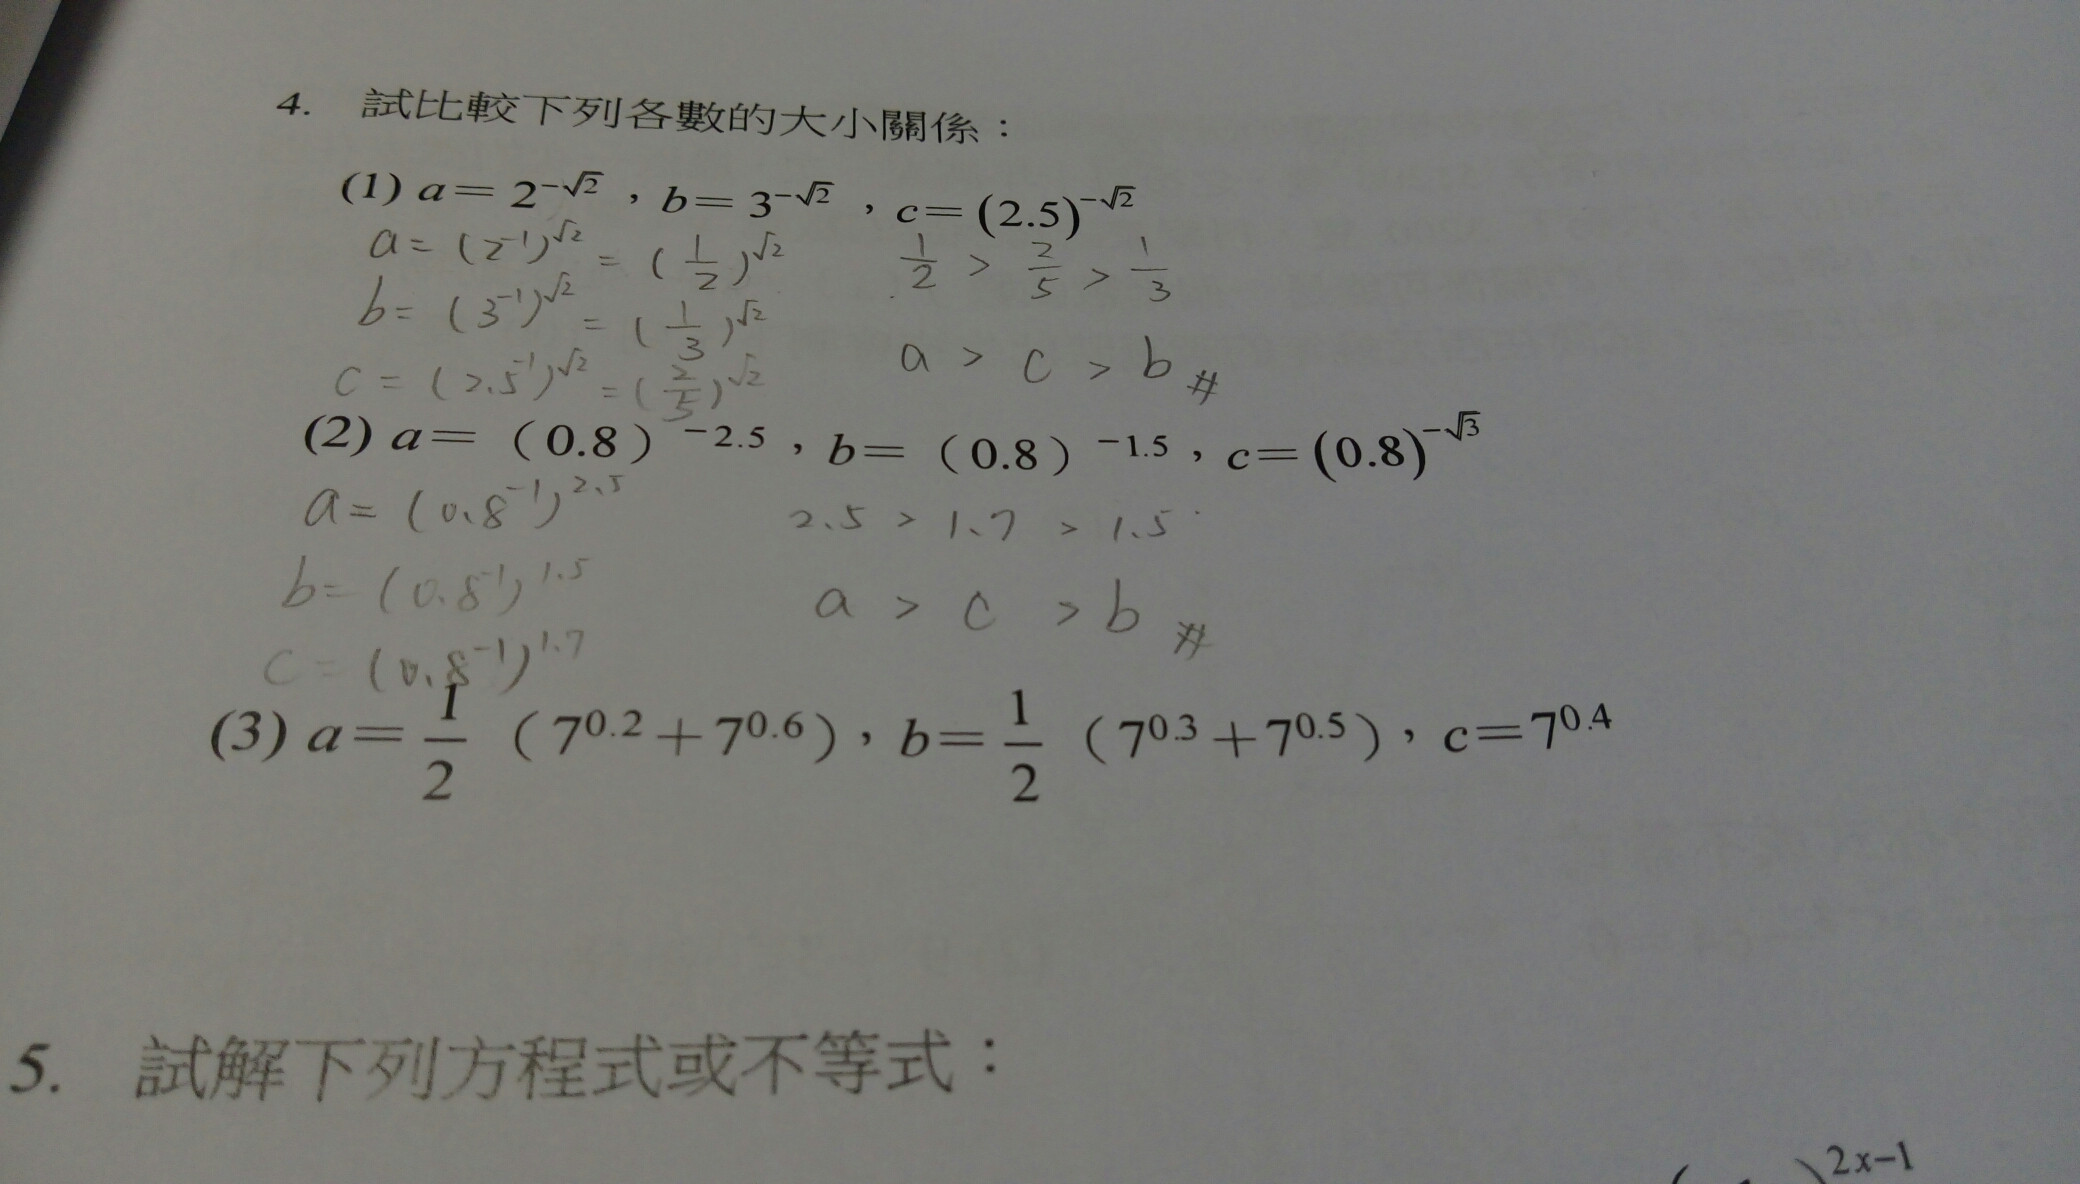 4. 試比較下列各數的大小關係：
(1) a = 2^{-√2} , b = 3^{-√2} , c = (2.5)^{-√2}
a = (2^{-1})^{√2} = (1/2)^{√2}
1/2 > 2/5 > 1/3
b = (3^{-1})^{√2} = (1/3)^{√2}
a > c > b #
c = (2.5^{-1})^{√2} = (2/5)^{√2}
(2) a = (0.8)^{-2.5} , b = (0.8)^{-1.5} , c = (0.8)^{-√3}
a = (0.8^{-1})^{2.5}
2.5 > 1.7 > 1.5
b = (0.8^{-1})^{1.5}
a > c > b #
c = (0.8^{-1})^{1.7}
(3) a = 1/2 (7^{0.2} + 7^{0.6}) , b = 1/2 (7^{0.3} + 7^{0.5}) , c = 7^{0.4}
5. 試解下列方程式或不等式：
2x-1